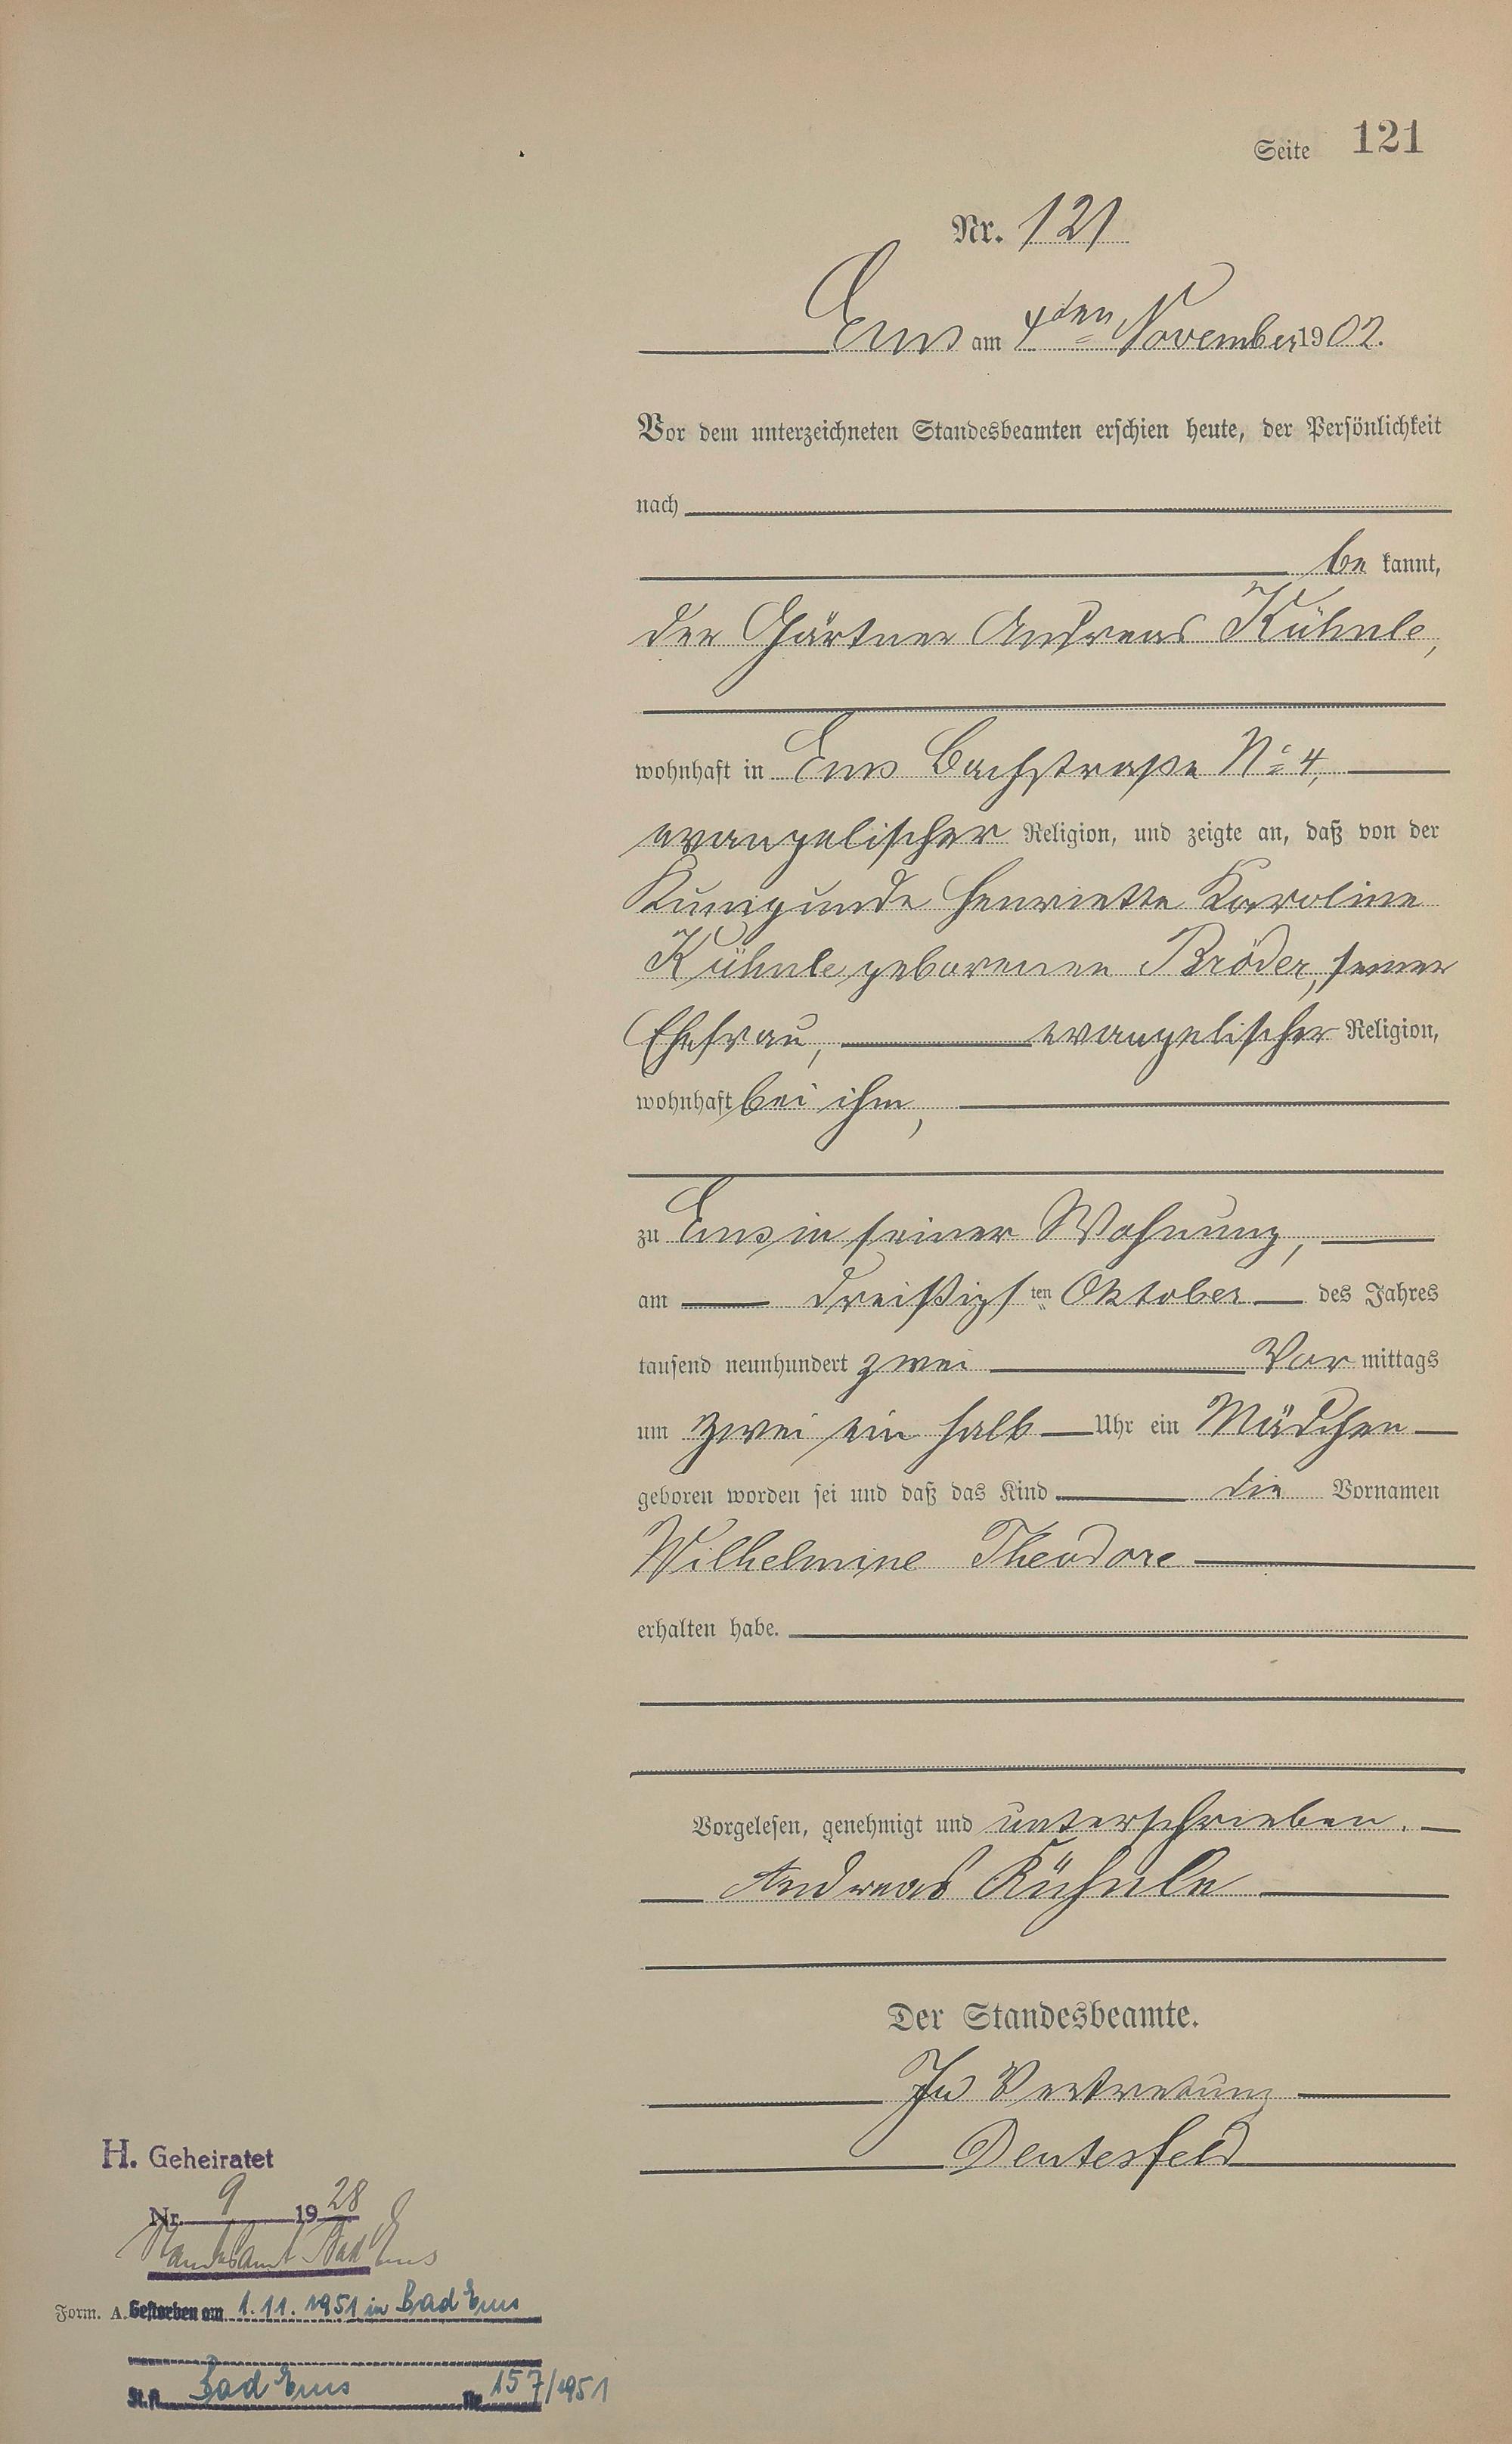 Seite 121
Nr. 121
Ems am 4ten November 1902.
Vor dem unterzeichneten Standesbeamten erschien heute, der Persönlichkeit
nach
be kannt,
der Gärtner Andreas Kühnle,
wohnhaft in Ems Bachstraße No 4,
evangelischer Religion, und zeigte an, daß von der
Kunigunde Henriette Karoline
Kühnle geborenen Bröder, seiner
Ehefrau, evangelischer Religion,
wohnhaft bei ihm,
zu Ems in seiner Wohnung,
am dreißigsten Oktober des Jahres
tausend neunhundert zwei Vor mittags
um zwei ein halb Uhr ein Mädchen
geboren worden sei und daß das Kind die Vornamen
Wilhelmine Theodore
erhalten habe.
Vorgelesen, genehmigt und unterschrieben.
Andreas Kühnle
Der Standesbeamte.
In Vertretung
Deutesfeld
H. Geheiratet
Nr. 9 1928
Standesamt Bad Ems
Form. A. Gestorben am 1.11.1951 in Bad Ems
St.A. Bad Ems Nr. 157/1951